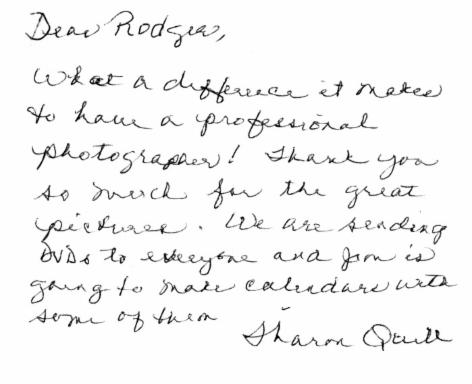 Dear Rodger,
What a difference it makes
to have a professional
photographer! Thank you
so much for the great
pictures. We are sending
DVDs to everyone and Jim is
going to make calendars with
some of them
Sharon Quill